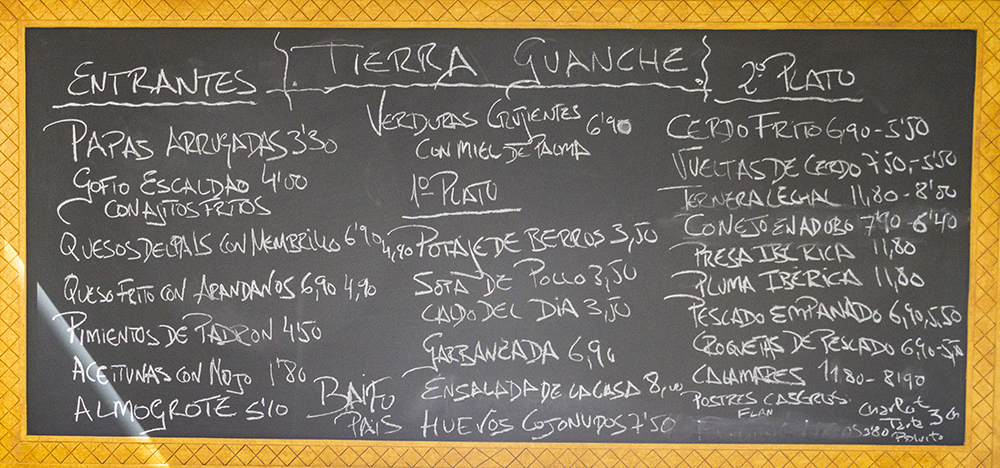 TIERRA GUANCHE
ENTRANTES
PAPAS ARRUGADAS 3'30
GOFIO ESCALDAO 4'00
CON AJITOS FRITOS
QUESOS DEL PAIS CON MEMBRILLO 6'90 4,90
QUESO FRITO CON ARANDANOS 6,90 4,90
PIMIENTOS DE PADRON 4'50
ACEITUNAS CON MOJO 1'80
ALMOGROTE 5'10
VERDURAS CRUJIENTES 6'90
CON MIEL DE PALMA
1º PLATO
POTAJE DE BERROS 3,50
SOPA DE POLLO 3,50
CALDO DEL DIA 3,50
GARBANZADA 6,90
ENSALADA DE LA CASA 8,00
BAIFO
PAIS
HUEVOS COJONUDOS 7'50
2º PLATO
CERDO FRITO 6,90 - 5'50
VUELTAS DE CERDO 7'50 - 5'50
TERNERA LECHAL 11,80 - 8'00
CONEJO EN ADOBO 7'90 - 6'40
PRESA IBÉRICA 11,80
PLUMA IBÉRICA 11,80
PESCADO EMPANADO 6,90, 5,50
CROQUETAS DE PESCADO 6,90 - 5,50
CALAMARES 11,80 - 8'90
POSTRES CASEROS
FLAN